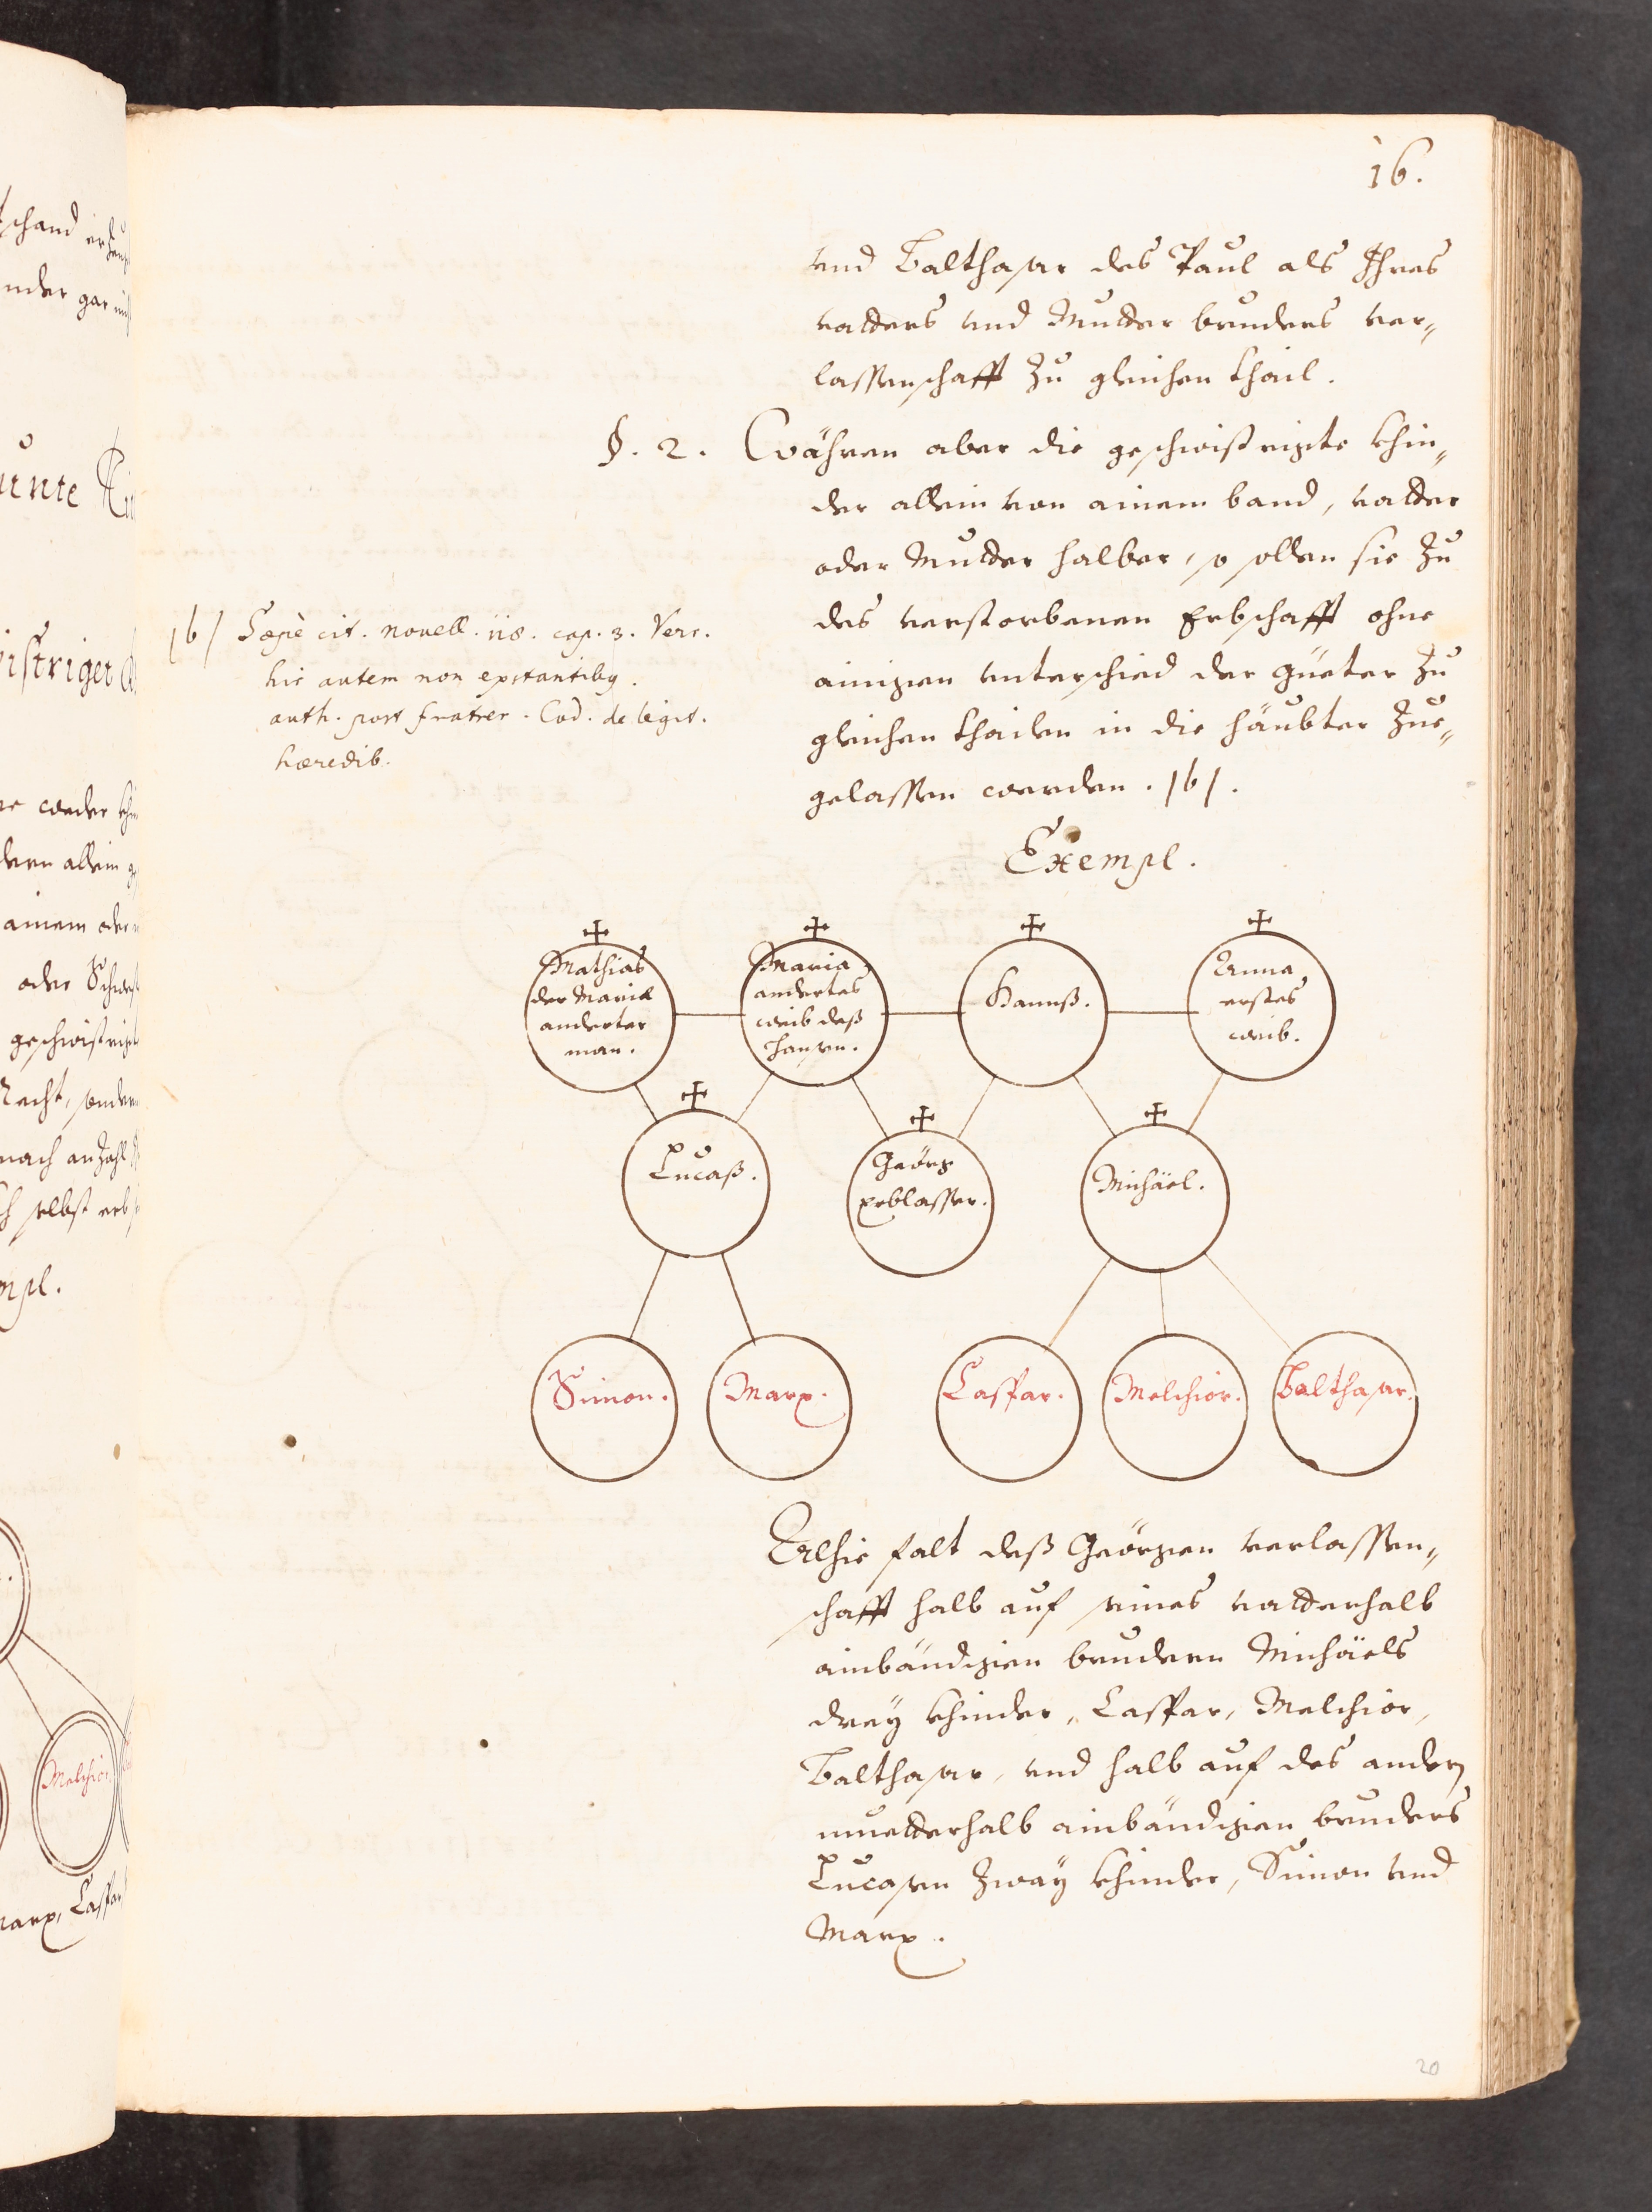 16.
und Balthasar des Paul als Ihres
vatters und Mutter bruders ver„
lassenschafft zu gleichen thail.
§. 2. Währen aber die geschwistrigte khin„
der allein von ainem band, vatter
oder Mutter halber, so sollen sie zu
des verstorbenen Erbschafft ohne
ainigen unterschied der güeter zu
gleichen thailen in die häubter zue„
gelassen werden. /b/.
/b/ Sæpè cit. novell. 118. cap. 3. Vers.
his autem non existentibus.
auth. post fratres. Cod. de legit.
hæredib.
Exempl.
Mathias
der Mariæ
anderter
man.
Maria,
andertes
weib deß
Hansen.
Hannß.
Anna,
erstes
weib.
Lucaß.
Geörg
erblasser.
Michäel.
Simon.
Marx.
Caspar.
Melchior.
Balthasar.
Alhie falt deß Geörgen verlassen„
schafft halb auf seines vatterhalb
ainbändigen brudern Michäels
drey khinder, Caspar, Melchior,
Balthasar, und halb auf des andern
muetterhalb ainbändigen bruders
Lucasen zway khinder, Simon und
Marx.
20